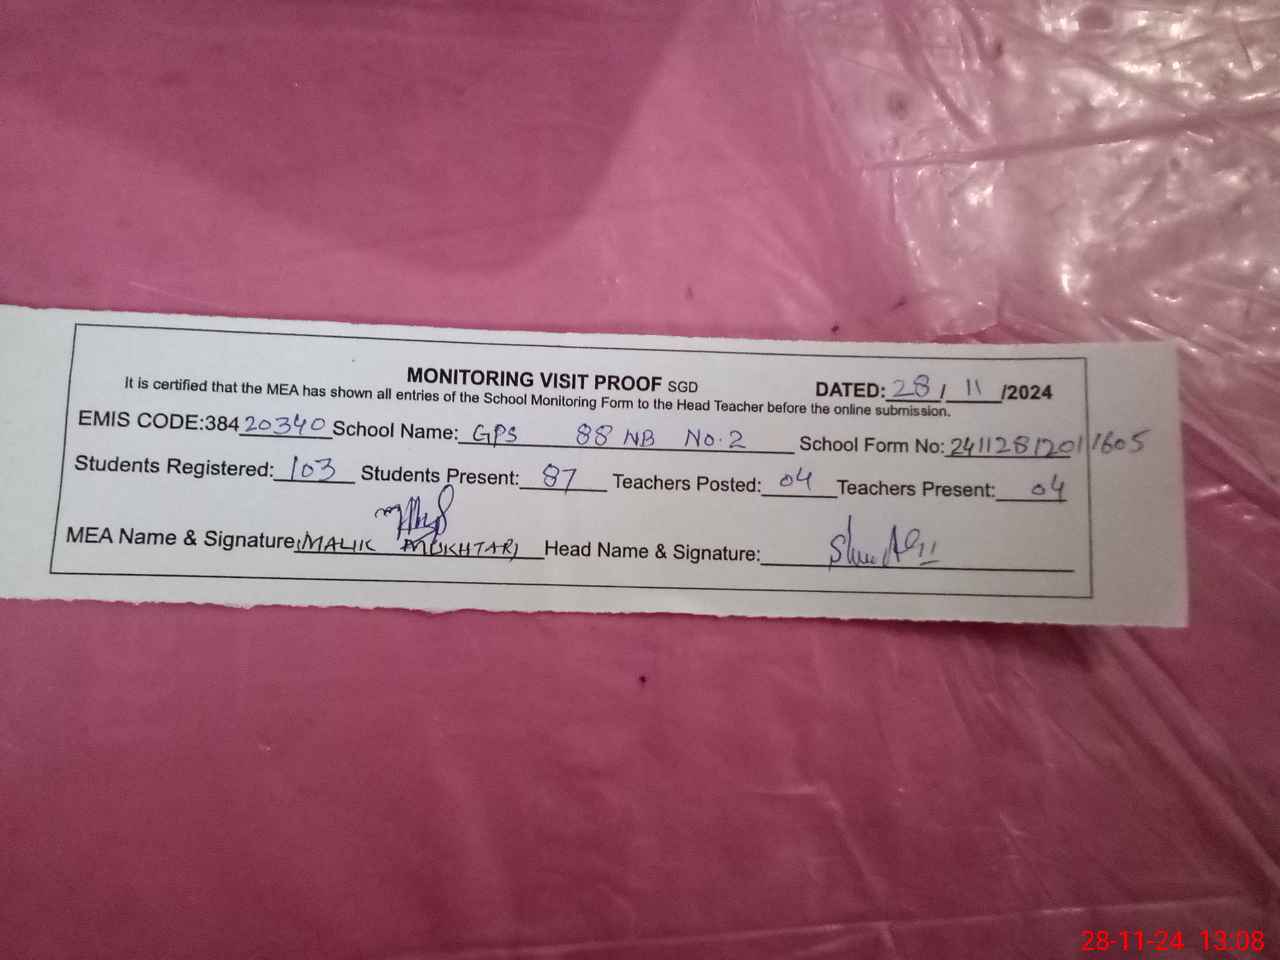 MONITORING VISIT PROOF SGD DATED: 28 / 11 /2024
It is certified that the MEA has shown all entries of the School Monitoring Form to the Head Teacher before the online submission.
EMIS CODE:38420340 School Name: GPS 88 NB No.2 School Form No: 24112812011605
Students Registered: 103 Students Present: 87 Teachers Posted: 04 Teachers Present: 04
MEA Name & Signature (MALIK MUKHTAR) Head Name & Signature:
28-11-24 13:08